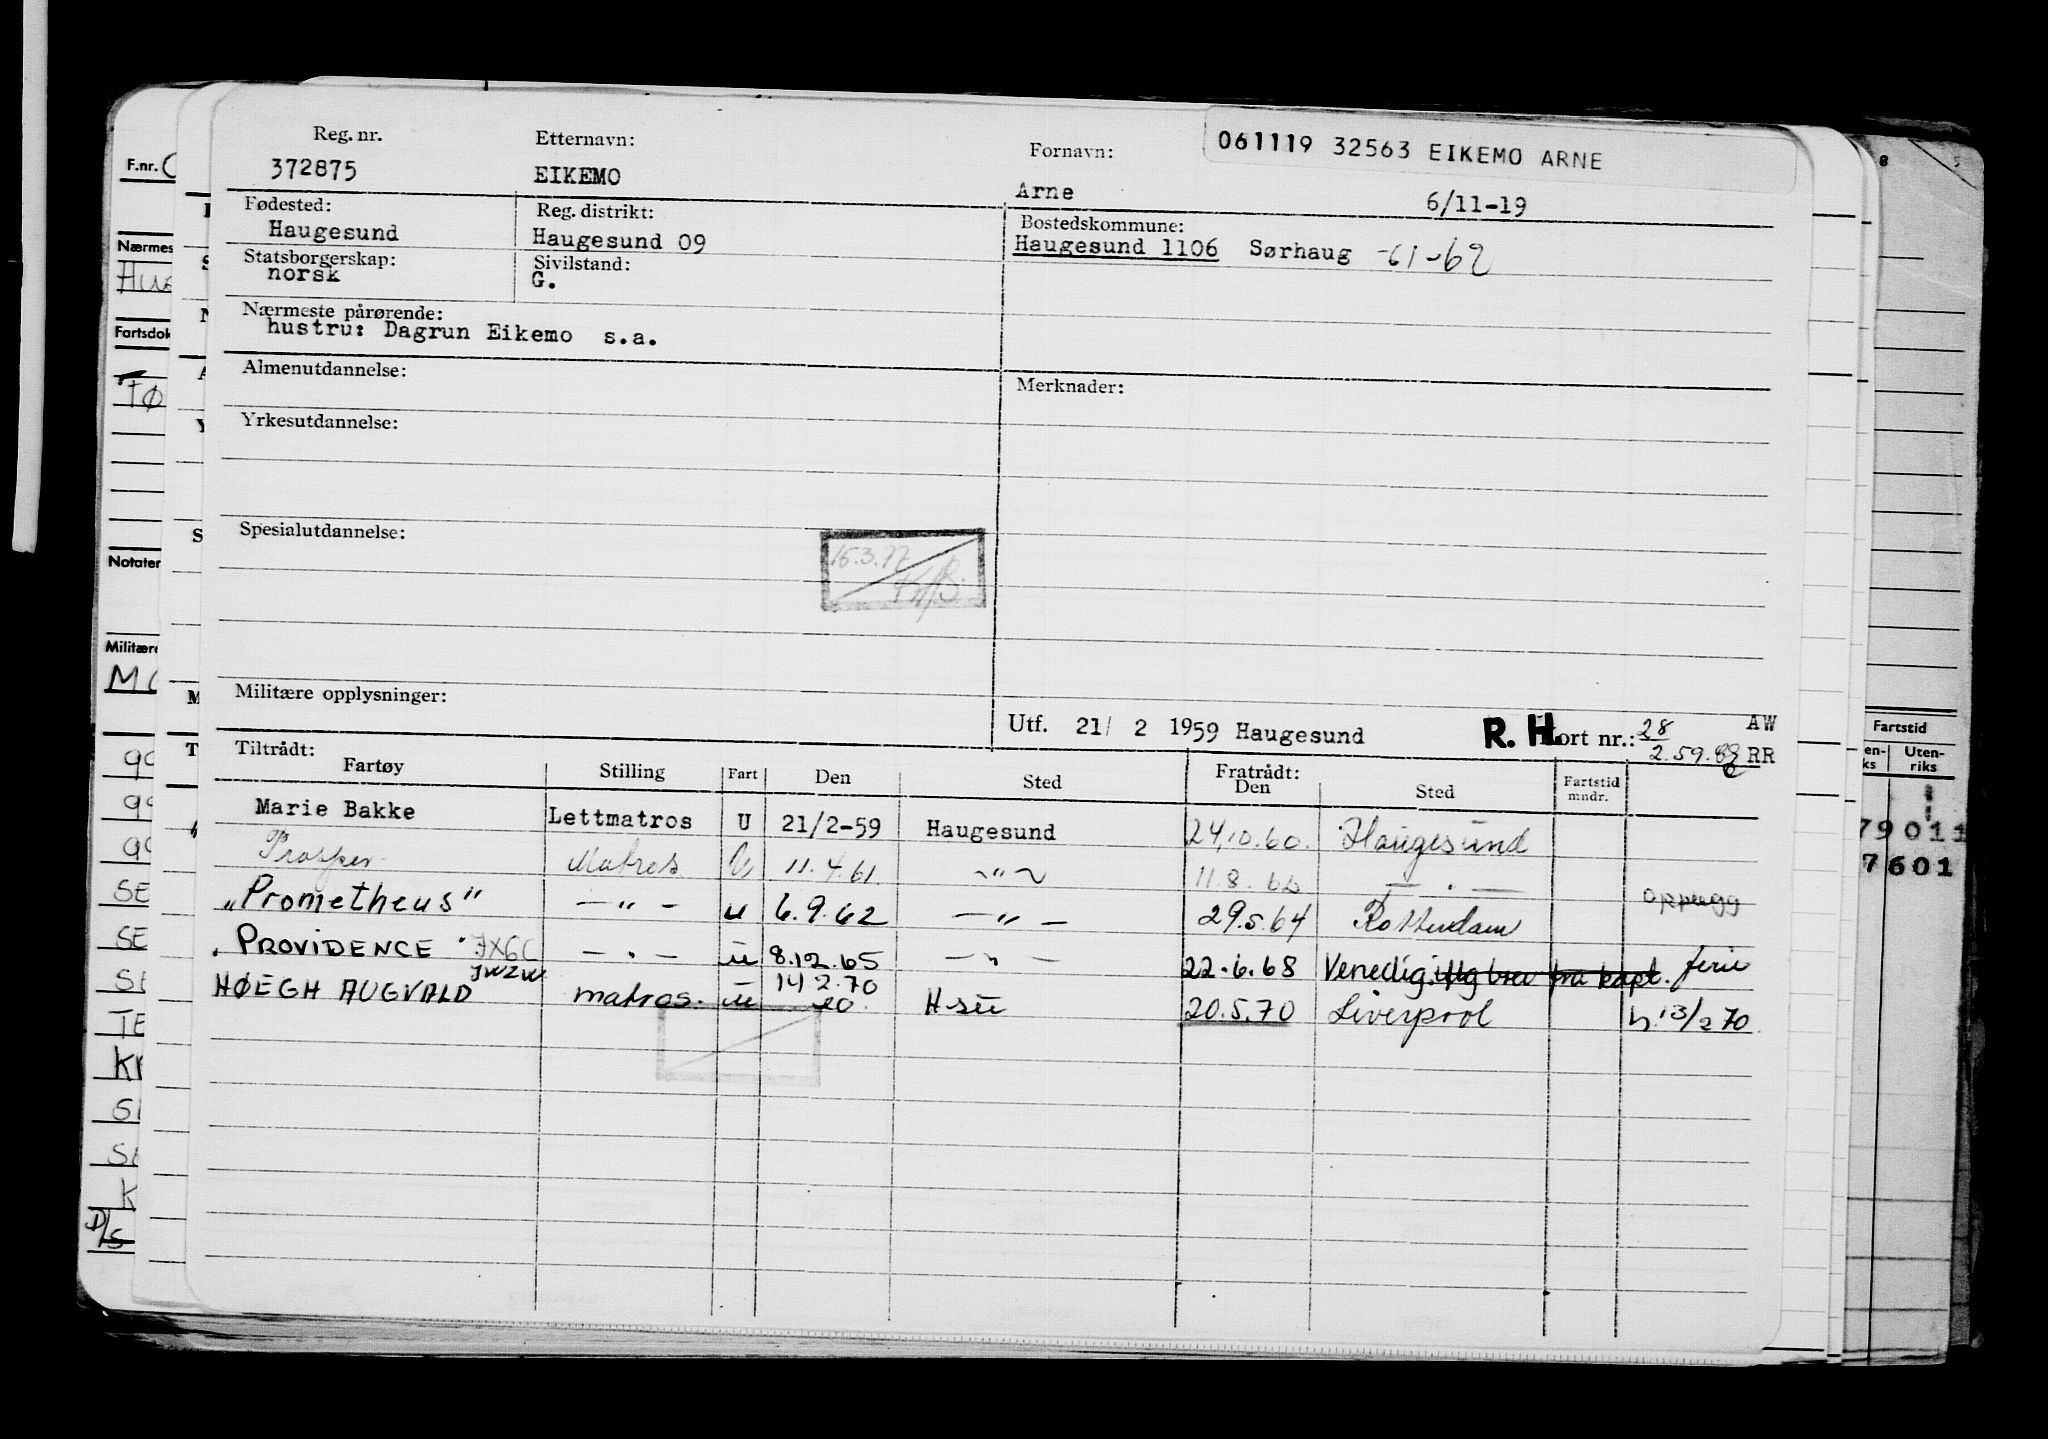 Reg. nr. Etternavn: Fornavn: 061119 32563 EIKEMO ARNE
372875 EIKEMO Arne 6/11-19
Fødested: Reg. distrikt: Bostedskommune:
Haugesund Haugesund 09 Haugesund 1106 Sørhaug -61-62
Statsborgerskap: Sivilstand:
norsk G.
Nærmeste pårørende:
hustru: Dagrun Eikemo s.a.
Almenutdannelse: Merknader:
Yrkesutdannelse:
Spesialutdannelse:
15.3.77
Militære opplysninger:
Utf. 21/ 2 1959 Haugesund R. H. ort nr.: 28 AW
2.59. RR
Tiltrådt: Fratrådt:
Fartøy Stilling Fart Den Sted Den Sted Fartstid mndr.
Marie Bakke Lettmatros U 21/2-59 Haugesund 24.10.60. Haugesund
Prosper Matros U 11.4.61. ~"~ 11.8.62 — . —
opphugg
„Prometheus" — " — u 6.9.62 — " — 29.5.64 Rotterdam
„PROVIDENCE" JXGC — " — u 8.12.65 — " — 22.6.68 Venedig. Utg brev fra kapt. ferie
JWZW 14 2.70
HØEGH AUGVALD matros. u 20. H-su 20.5.70 Liverpool h.13/2 70
F.nr.
Nærmes
Fartsdok
FØ
Notater
Militære
99
99
99
SE
SE
TE
D/S
8 5
Fartstid
en-ks Uten-riks
79 011
7601